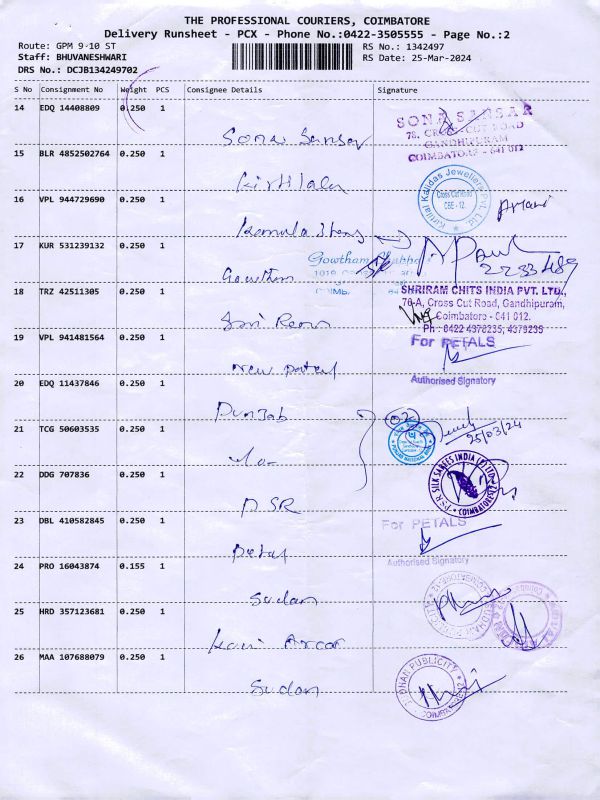 THE PROFESSIONAL COURIERS, COIMBATORE
Delivery Runsheet - PCX - Phone No.:0422-3505555 - Page No.:2
Route: GPM 9-10 ST
RS No.: 1342497
Staff: BHUVANESHWARI
RS Date: 25-Mar-2024
DRS No.: DCJB134249702
S No Consignment No Weight PCS Consignee Details Signature
14 EDQ 14408809 0.250 1
SONA SANSAR
78, CROSS-CUT ROAD
GANDHIPURAM
COIMBATORE - 641 012
Sona Sansar
15 BLR 4852502764 0.250 1
Kirtilal Kalidas Jewellers Pvt. Ltd
Cross Cut Road
CBE - 12.
Kirtilalu
16 VPL 944729690 0.250 1
Kamula
17 KUR 531239132 0.250 1
Gowtham
2233489
Gowthm
18 TRZ 42511305 0.250 1
SHRIRAM CHITS INDIA PVT. LTD.,
76-A, Cross Cut Road, Gandhipuram,
Coimbatore - 641 012.
Ph : 0422 4378235, 4379235
Sri
19 VPL 941481564 0.250 1
For PETALS
Authorised Signatory
New petal
20 EDQ 11437846 0.250 1
Punjab
21 TCG 50603535 0.250 1
02
25/03/24
22 DDG 707836 0.250 1
PSR SILK SAREES INDIA (P) LTD
COIMBATORE
PSR
23 DBL 410582845 0.250 1
For PETALS
Authorised Signatory
Petal
24 PRO 16043874 0.155 1
Sudan
25 HRD 357123681 0.250 1
Hari
26 MAA 107688079 0.250 1
PUBLICITY
Sudan